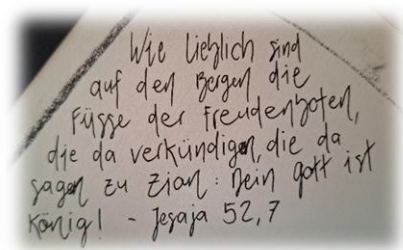 Wie lieblich sind
auf den Bergen die
Füsse der Freudenboten,
die da verkündigen, die da
sagen zu Zion: Dein Gott ist
König! - Jesaja 52,7